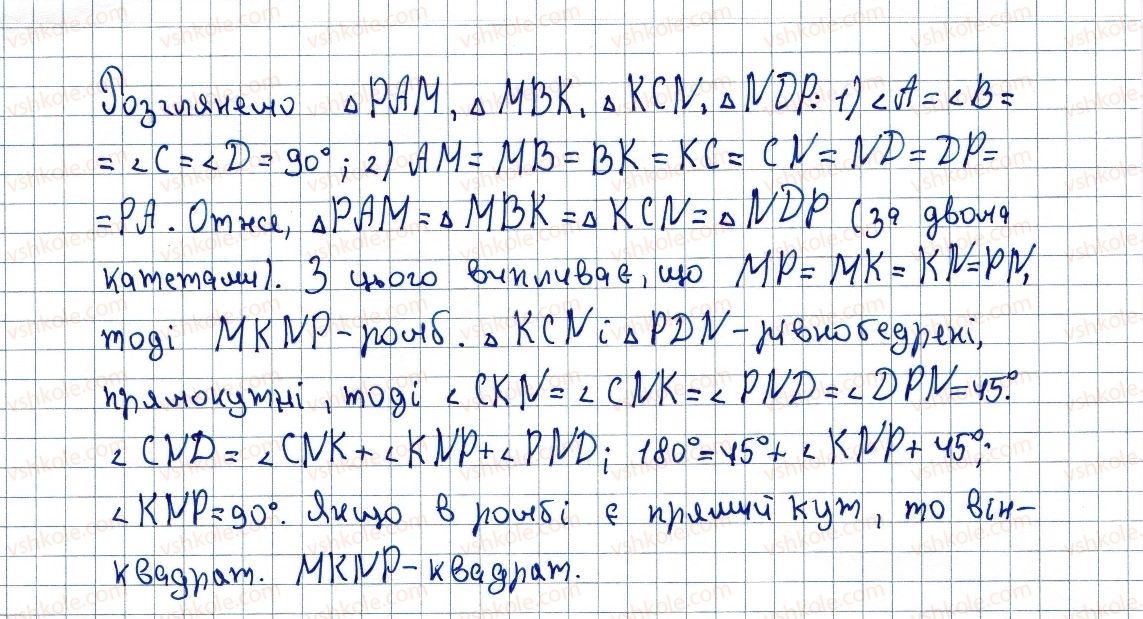 Розглянемо ▵ PAM, ▵ MBK, ▵ KCN, ▵ NDP: 1) ∠A = ∠B =
= ∠C = ∠D = 90°; 2) AM = MB = BK = KC = CN = ND = DP =
= PA. Отже, ▵ PAM = ▵ MBK = ▵ KCN = ▵ NDP (за двома
катетами). З цього випливає, що MP = MK = KN = PN,
тоді MKNP - ромб. ▵ KCN і ▵ PDN - рівнобедрені,
прямокутні, тоді ∠CKN = ∠CNK = ∠PND = ∠DPN = 45°.
∠CND = ∠CNK + ∠KNP + ∠PND; 180° = 45° + ∠KNP + 45°;
∠KNP = 90°. Якщо в ромбі є прямий кут, то він -
квадрат. MKNP - квадрат.